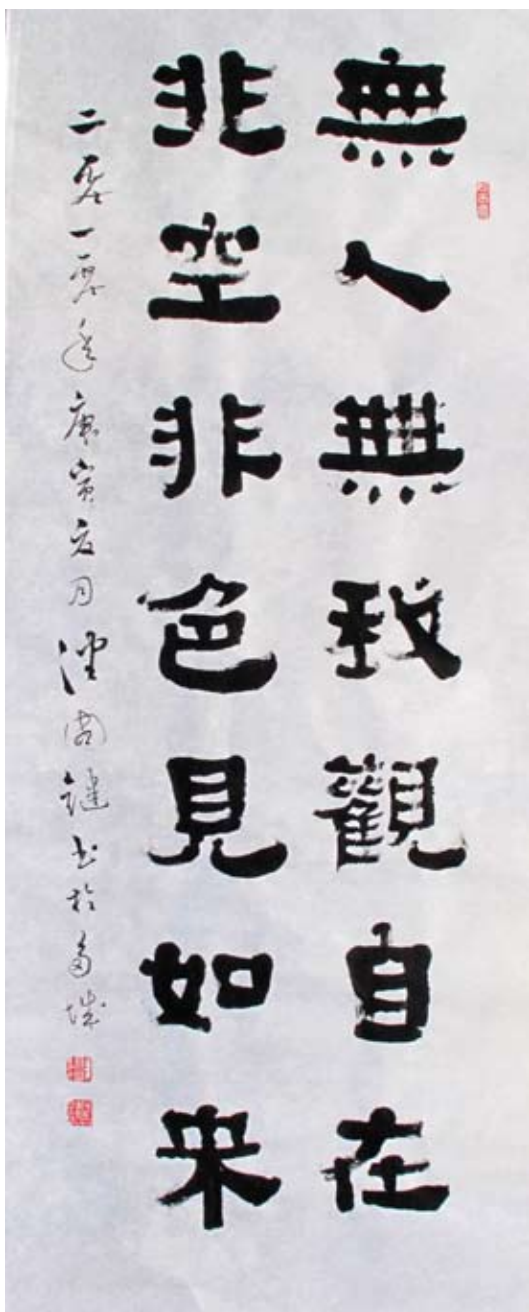 無人無我觀自在
非空非色見如来
二零一零年庚寅夏月 周健书於